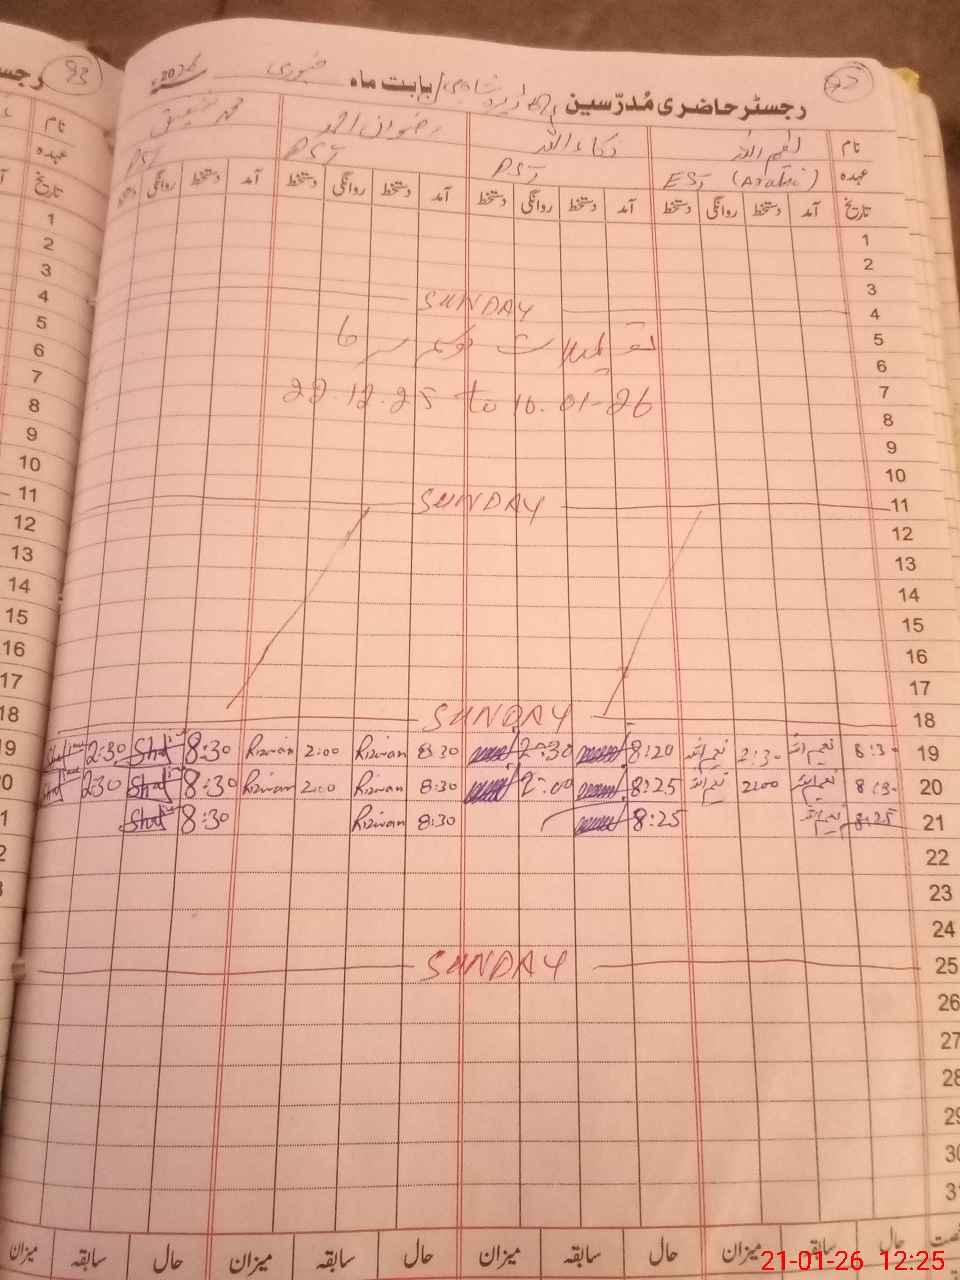 رجسٹر حاضری مُدرّسین بابت ماہ جنوری 20
نام نعیم اللہ ذکاء اللہ رضوان احمد محمد شفیق
عہدہ EST (Arabic) PST PST PST
تاریخ آمد دستخط روانگی دستخط آمد دستخط روانگی دستخط آمد دستخط روانگی دستخط آمد دستخط روانگی دستخط
1
2
3
4 SUNDAY
5 تعطیلات موسم سرما
6
7 22.12.25 to 16.01-26
8
9
10
11 SUNDAY
12
13
14
15
16
17
18 SUNDAY
19 8:30 نعیم اللہ 2:30 نعیم اللہ 8:20 2:30 8:30 Rizwan 2:00 Rizwan 8:30 Shafi 2:30
20 8:30 نعیم اللہ 2:00 نعیم اللہ 8:25 2:00 8:30 Rizwan 2:00 Rizwan 8:30 Shafi 2:30
21 8:25 نعیم اللہ 8:25 8:30 Rizwan 8:30 Shafi
22
23
24
25 SUNDAY
26
27
28
29
30
31
حال سابقہ میزان حال سابقہ میزان حال سابقہ میزان حال سابقہ میزان
21-01-26 12:25
93
رجس
نام
عہدہ
تاریخ
1
2
3
4
5
6
7
8
9
10
11
12
13
14
15
16
17
18